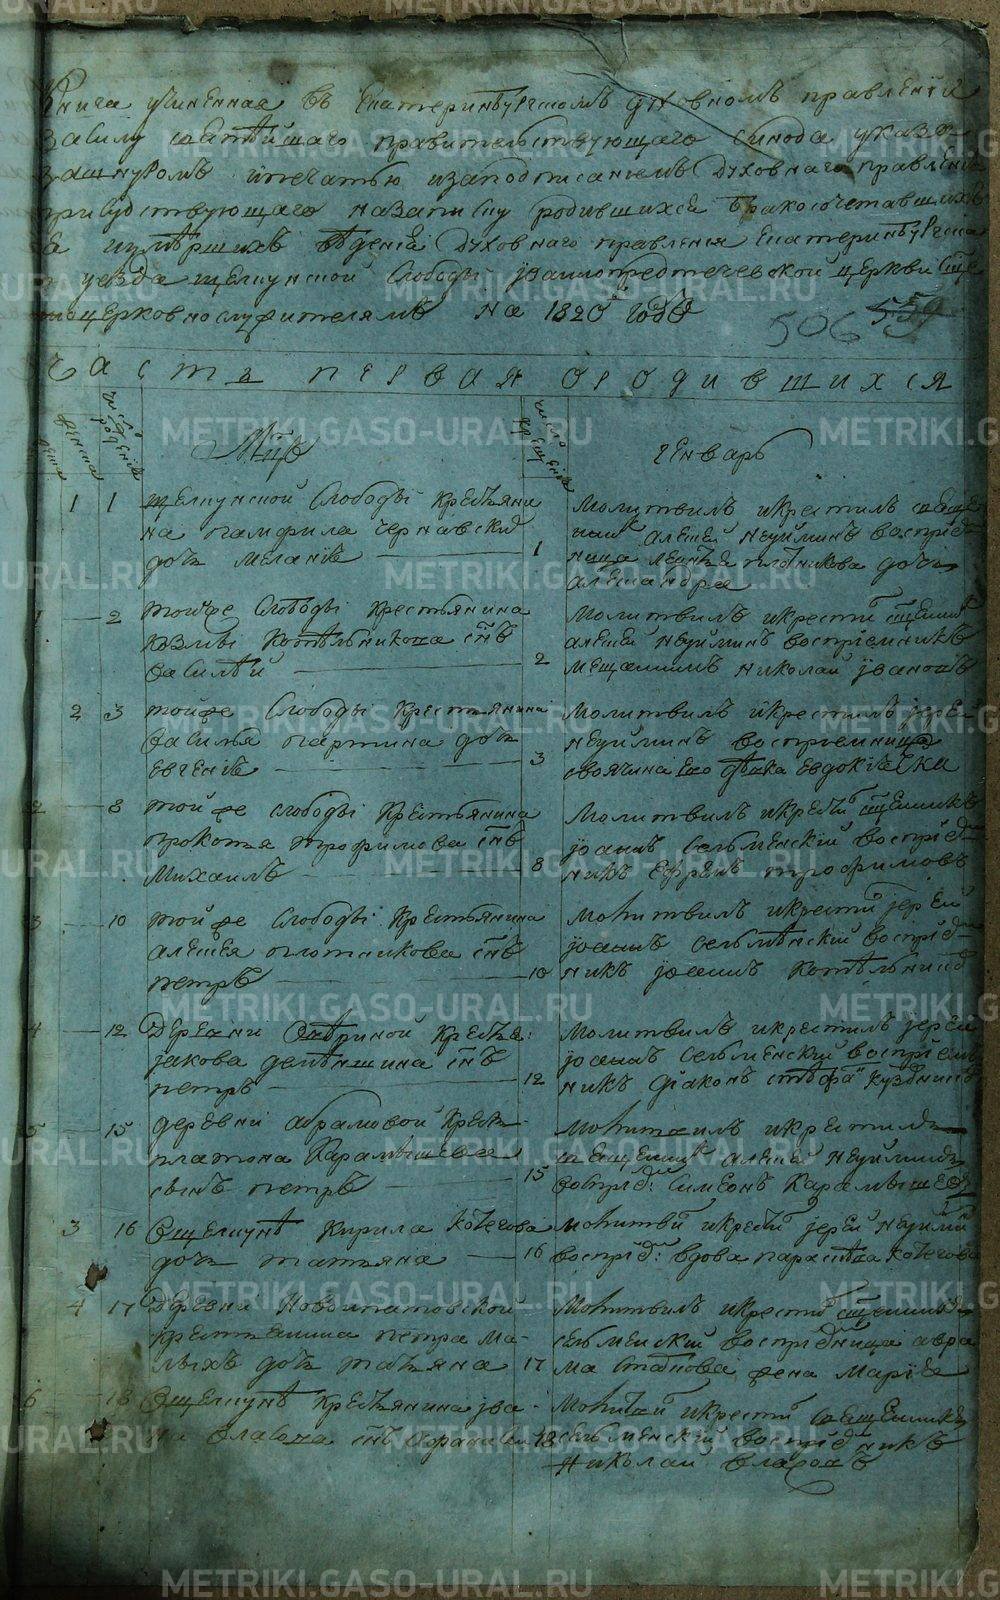 Книга учиненная въ Екатеринбургскомъ духовномъ правленіи
за силу святѣйшаго правительствующаго синода указа
зашнуромъ ипечатью изаподписаніемъ духовнаго правленія
присудствующаго назаписку родившихся бракосочетавшихъ
изумѣршихъ вѣденія духовнаго правленія Екатеринбургска
уезда щелкунской Слободы іоаннопредтечевской церкви
церковнослужителямъ на 1820 годъ
506 559
Часть первая ородившихся
Мцъ генварь
1 1 щелкунской Слободы Крестьяни
на памфила чернавских
дочь меланія
1 молитвилъ икрестилъ священ
никъ алексей неуйминъ воспріем
ница плотникова дочь
александра
1 2 тойже Слободы крестьянина
козмы Котѣльникова снъ
василѣй
2 молитвилъ икрести священникъ
алексей неуйминъ воспріемникъ
мещанинъ николай івановъ
2 3 тойже Слободы Крестьянина
василья партина дочь
евгенія
3 молитвилъ икрестилъ іерей
неуйминъ воспріемница
своячина его евдокія
8 той же слободы Крестьянина
прокопья трофимова снъ
михаилъ
8 молитвилъ икрестилъ священникъ
іоаннъ сельменскій воспріем
никъ ефремъ трофимовъ
3 10 той же Слободы Крестьянина
алексея плотникова снъ
петръ
10 молитвилъ икрестилъ іерей
іоаннъ сельменскій воспріем
никъ іоаннъ котѣльник
4 12 деревни Крестья:
іакова снъ
петръ
12 молитвилъ икрестилъ іерей
іоаннъ сельменскій воспріем
никъ діаконъ стефа
5 15 деревни абрамовой Крестья
платона Карамышева
сынъ петръ
15 молитвилъ икрестилъ
священникъ алексей неуйминъ
воспріем: Симеонъ Карамышев
3 16 вщелкунѣ Кирила кочегова
дочь татьяна
16 молитви икрести іерей неуйми
воспріем: вдова параскева кочегова
4 17 деревни Новоипатовской
крестьянина петра ма-
лыхъ дочь татьяна
17 молитвилъ икрести священникъ
сельменскій воспріемница авра
ма жена марія
6 18 вщелкунѣ Крестьянина іва-
на власова снъ афанасій
18 молитви икрести священникъ
сельменскій воспріемникъ
николай власовъ
METRIKI.GASO-URAL.RU